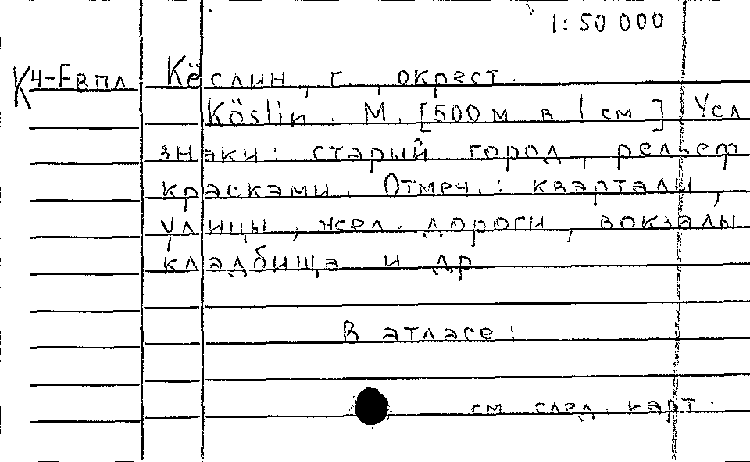 1:50 000
К4-Евпл Кёслин, г., окрест.
Köslin. М. [500 м в 1 см] Усл
знаки: старый город, рельеф
красками. Отмеч.: кварталы,
улицы, жел. дороги, вокзалы
кладбища и др
В атласе:
см след. карт.